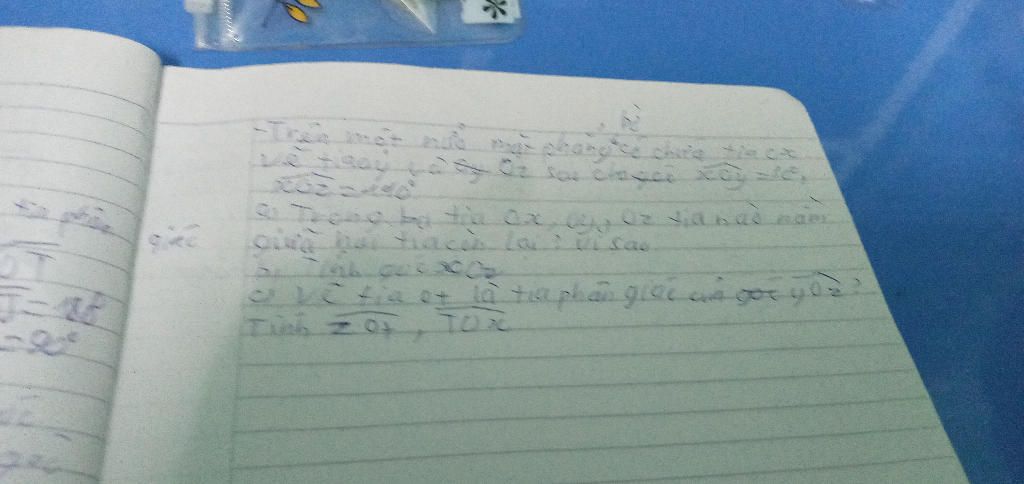 bờ
- Trên một nửa mặt phẳng có chứa tia ox
vẽ tia oy và Oz sao cho góc xOy =
xOz =
a) Trong ba tia Ox, oy, Oz tia nào nằm
giữa hai tia còn lại? vì sao
b) Tính góc xOz
c) Vẽ tia ot là tia phân giác của góc yOz?
Tính zOt, TOx
tia phân
giác
OT
= 90°